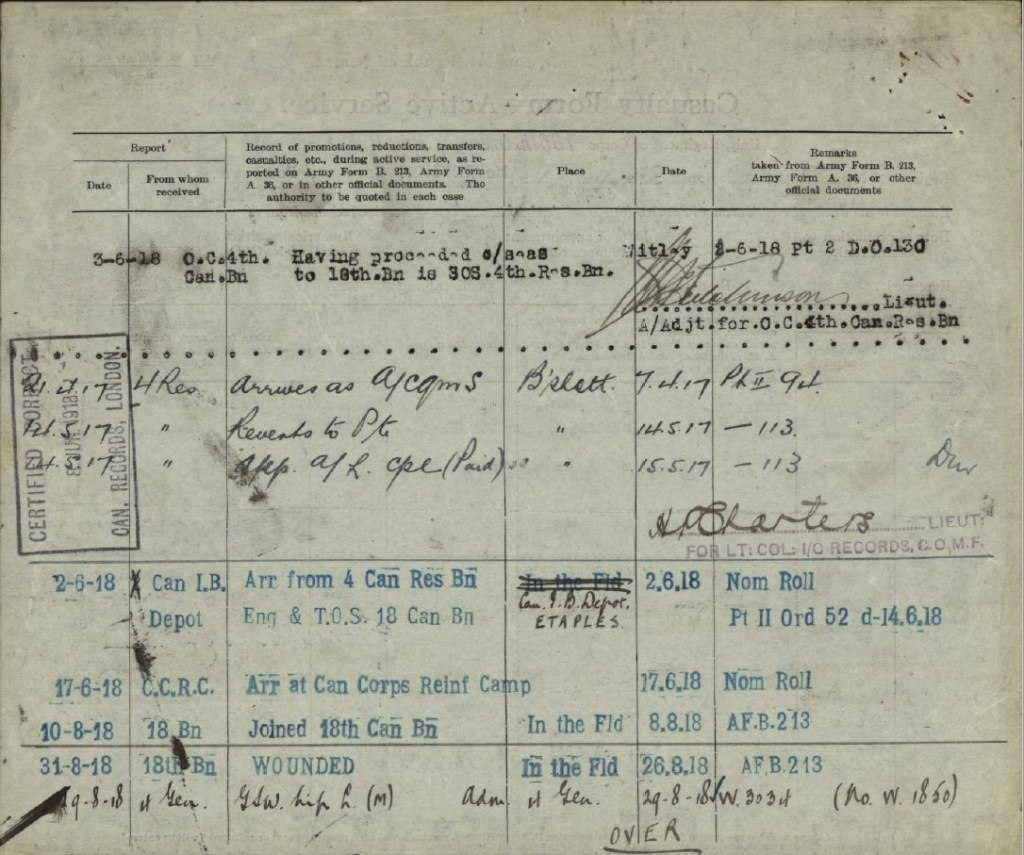 Casualty Form—Active Service.
Report
Date
From whom received
Record of promotions, reductions, transfers,
casualties, etc., during active service, as re-
ported on Army Form B. 213, Army Form
A. 36, or in other official documents. The
authority to be quoted in each case
Place
Date
Remarks
taken from Army Form B. 213,
Army Form A. 36, or other
official documents
3-6-18 O.C.4th. Having proceeded o/seas Witley 2-6-18 Pt 2 D.O.130
Can.Bn to 18th.Bn is SOS.4th.Res.Bn.
Lieut.
A/Adjt.for.O.C.4th.Can.Res.Bn
CERTIFIED CORRECT
CAN. RECORDS, LONDON.
4 Res arrives as A/CQMS B'shott. 7.4.17 Pt II 94.
" Reverts to Pte " 14.5.17 — 113.
" App. A/L. Cpl (Paid) " 15.5.17 — 113
Charters LIEUT:
FOR LT: COL: I/C RECORDS, C.O.M.F.
2-6-18 Can I.B. Arr from 4 Can Res Bn In the Fld 2.6.18 Nom Roll
Can. I.B. Depot.
Depot Eng & T.O.S. 18 Can Bn ETAPLES. Pt II Ord 52 d-14.6.18
17-6-18 C.C.R.C. Arr at Can Corps Reinf Camp 17.6.18 Nom Roll
10-8-18 18 Bn Joined 18th Can Bn In the Fld 8.8.18 AF.B.213
31-8-18 18th Bn WOUNDED In the Fld 26.8.18 AF.B.213
29-8-18 4 Gen. GSW. hip L. (M) Adm. 4 Gen. 29-8-18 W.3034 (No. W. 1850)
OVER